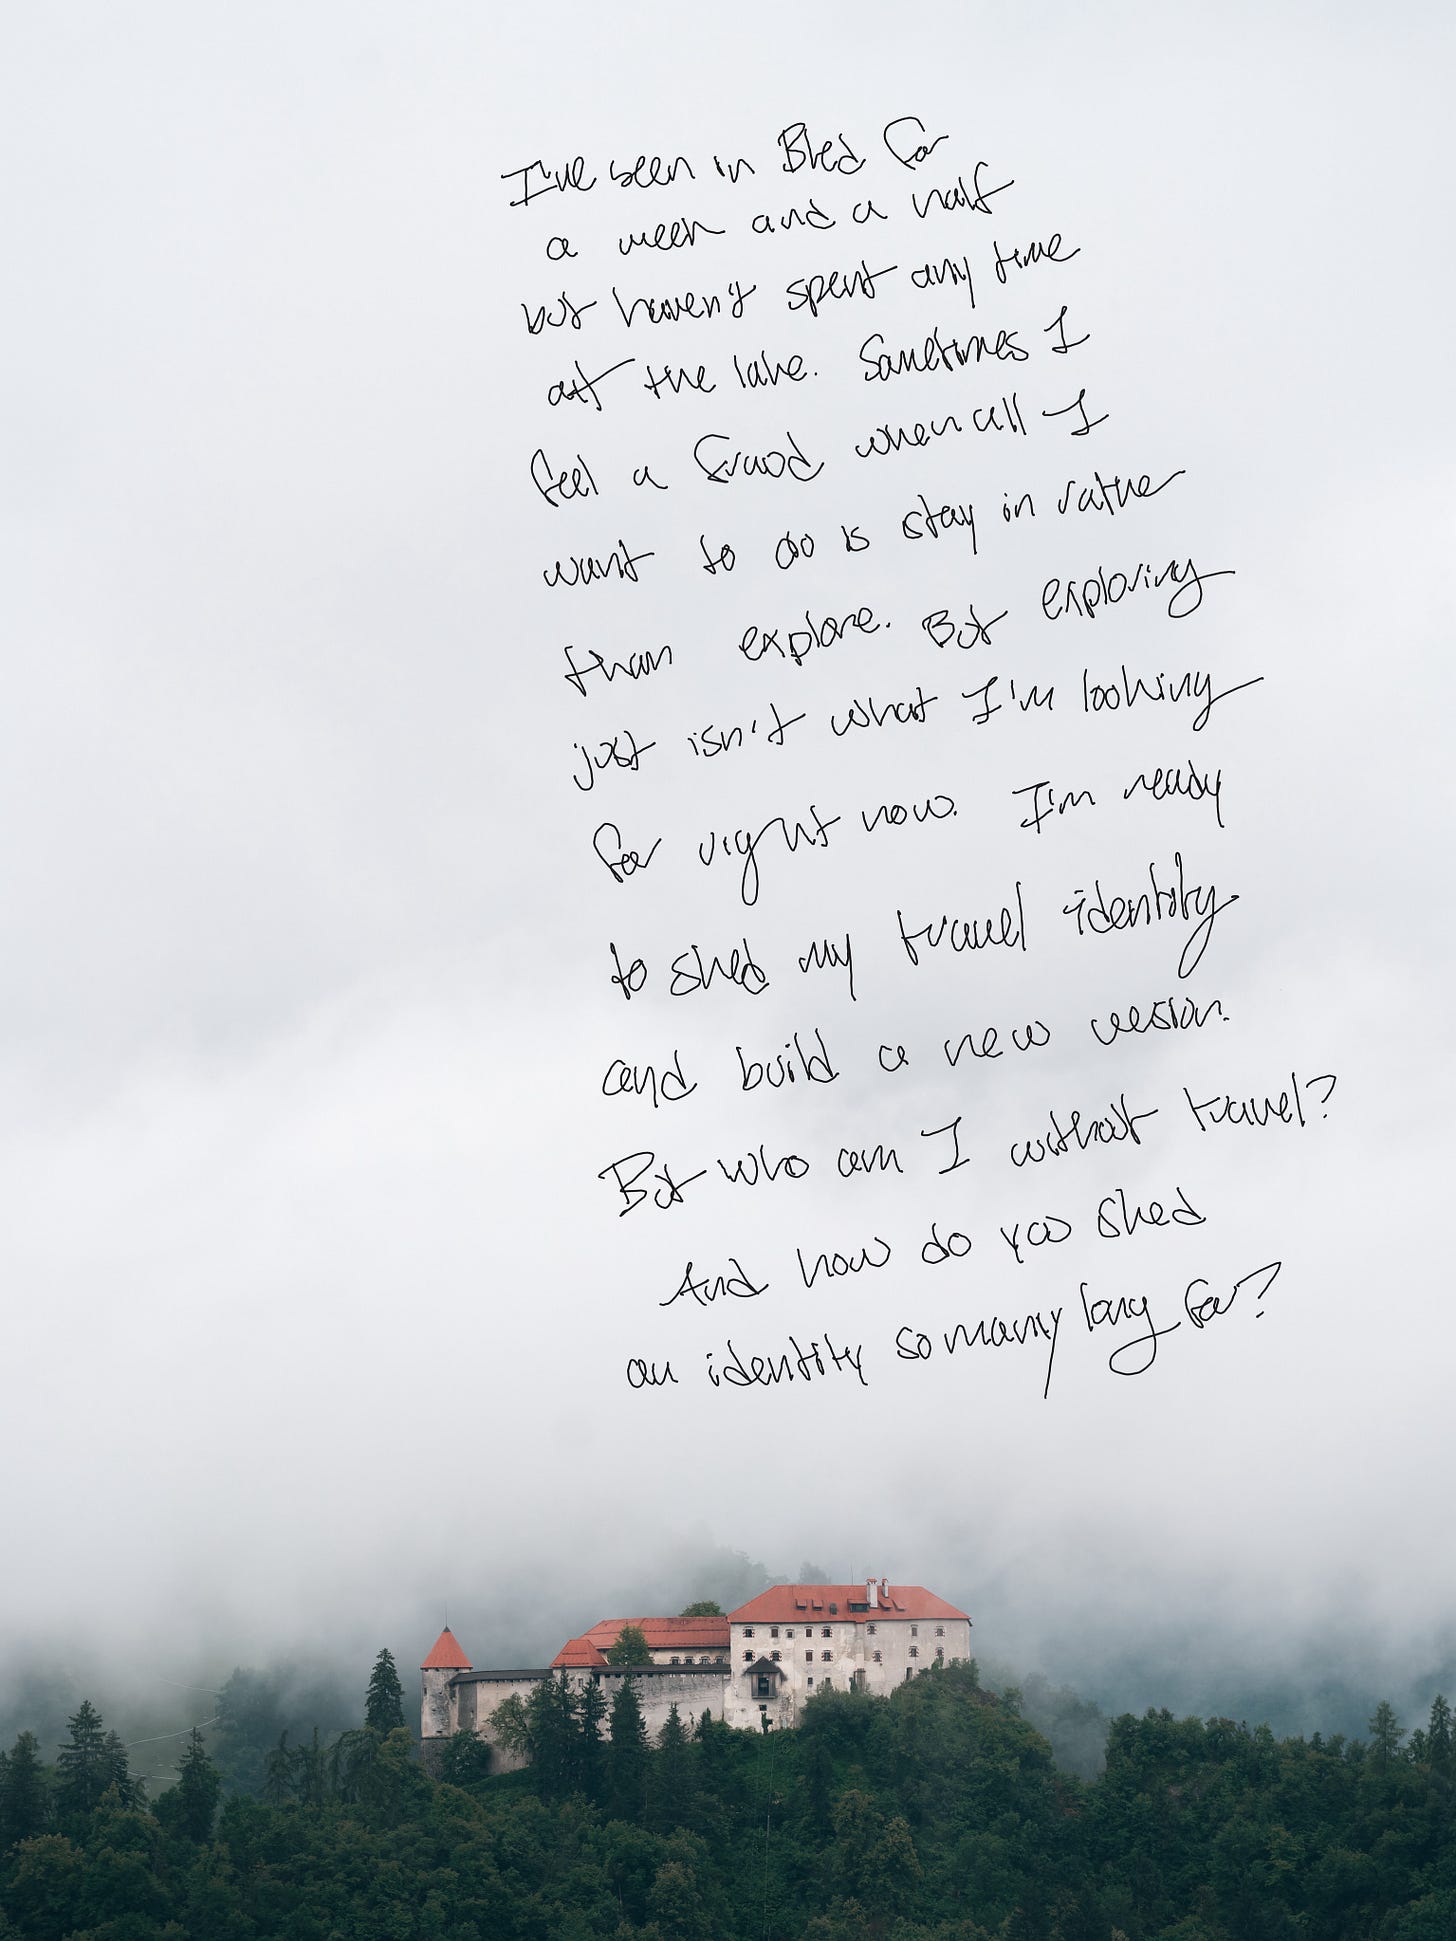 I've been in Bled for
a week and a half
but haven't spent any time
at the lake. Sometimes I
feel a fraud when all I
want to do is stay in rather
than explore. But exploring
just isn't what I'm looking
for right now. I'm ready
to shed my travel identity
and build a new version.
But who am I without travel?
And how do you shed
an identity so many long for?